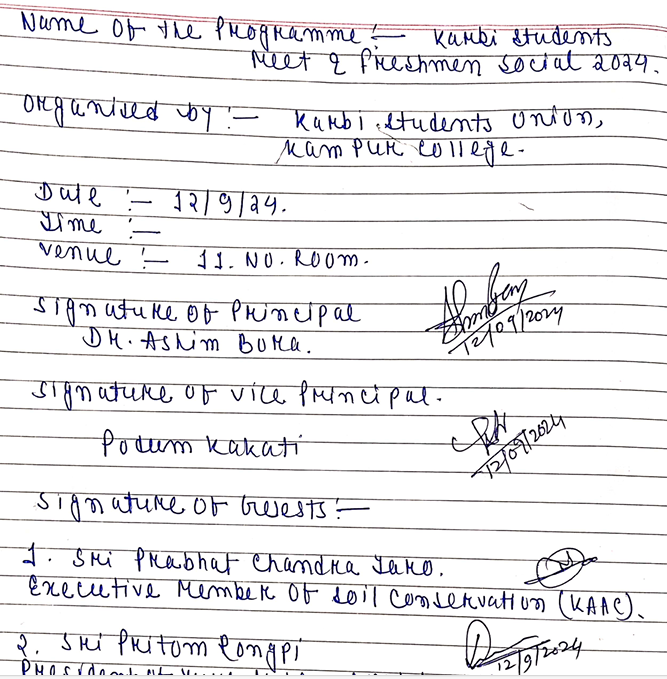 Name Of the Programme :- Karbi Students
Meet & Freshmen Social 2024.
Organised by :- Karbi Students Union,
Kampur College.
Date :- 12/9/24.
Time :-
Venue :- 11. No. Room.
Signature Of Principal
Dr. Ashim Bora.
12/09/2024
Signature of Vice Principal.
Podum Kakati
12/09/2024
Signature of Guests :-
1. Sri Prabhat Chandra Taro.
Executive Member Of Soil Conservation (KAAC).
2. Sri Pritom Rongpi
12/9/2024
President of